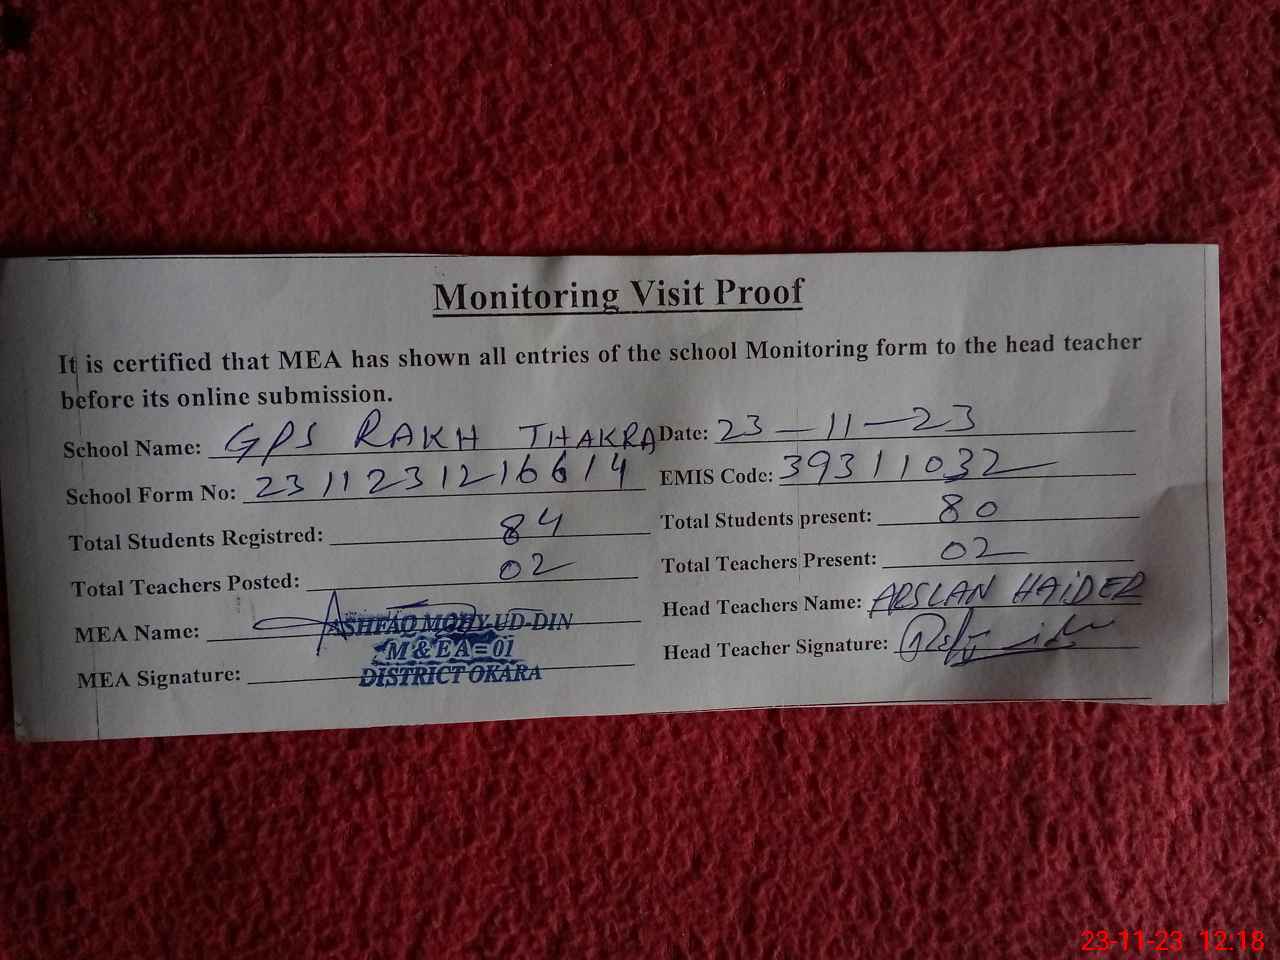 Monitoring Visit Proof
It is certified that MEA has shown all entries of the school Monitoring form to the head teacher
before its online submission.
School Name: GPS RAKH THAKRA Date: 23-11-23
School Form No: 2311231216614 EMIS Code: 39311032
Total Students Registred: 84 Total Students present: 80
Total Teachers Posted: 02 Total Teachers Present: 02
MEA Name: ASHFAQ MOHY-UD-DIN Head Teachers Name: ARSLAN HAIDER
M & E A = 01 Head Teacher Signature:
MEA Signature: DISTRICT OKARA
23-11-23 12:18